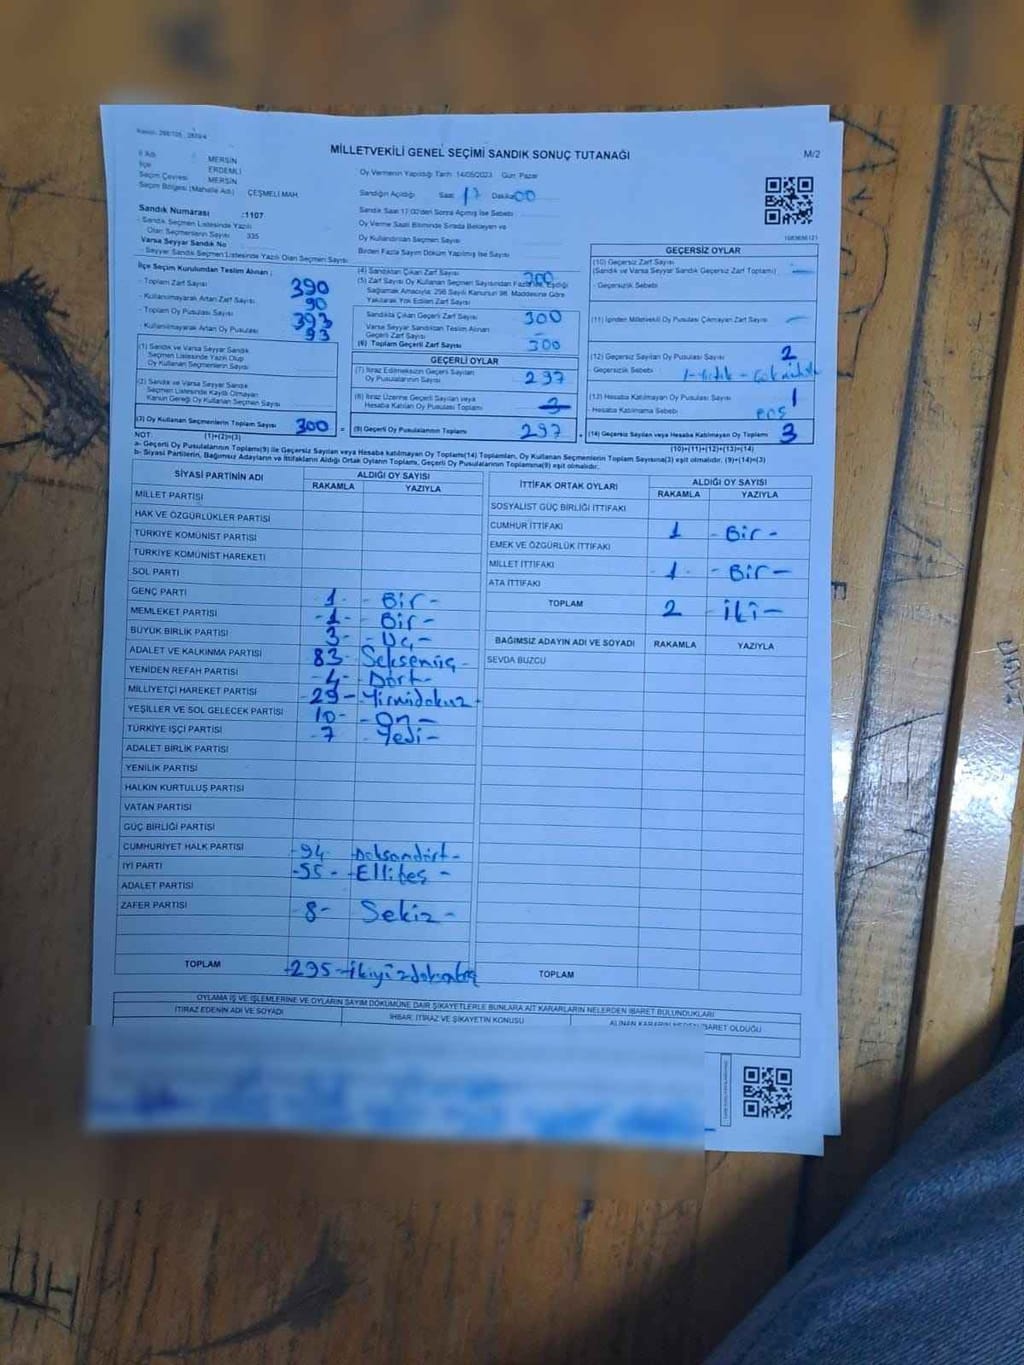 MİLLETVEKİLİ GENEL SEÇİMİ SANDIK SONUÇ TUTANAĞI
M/2
İl Adı : MERSİN
İlçe : ERDEMLİ
Seçim Çevresi : MERSİN
Seçim Bölgesi (Mahalle Adı) : ÇEŞMELİ MAH.
Oy Vermenin Yapıldığı Tarih: 14/05/2023 Gün: Pazar
Sandığın Açıldığı Saat: 17 Dakika: 00
Sandık Saat 17:00'den Sonra Açılmış İse Sebebi
Oy Verme Saati Bitiminde Sırada Bekleyen ve
Oy Kullandırılan Seçmen Sayısı
Birden Fazla Sayım Döküm Yapılmış İse Sayısı
Sandık Numarası :1107
- Sandık Seçmen Listesinde Yazılı
Olan Seçmenlerin Sayısı 335
Varsa Seyyar Sandık No
- Seyyar Sandık Seçmen Listesinde Yazılı Olan Seçmen Sayısı
İlçe Seçim Kurulundan Teslim Alınan ;
- Toplam Zarf Sayısı : 390
- Kullanılmayarak Artan Zarf Sayısı : 90
- Toplam Oy Pusulası Sayısı : 393
- Kullanılmayarak Artan Oy Pusulası : 93
(1) Sandık ve Varsa Seyyar Sandık
Seçmen Listesinde Yazılı Olup
Oy Kullanan Seçmenlerin Sayısı
(2) Sandık ve Varsa Seyyar Sandık
Seçmen Listesinde Kayıtlı Olmayan
Kanun Gereği Oy Kullanan Seçmen Sayısı
(3) Oy Kullanan Seçmenlerin Toplam Sayısı 300 =
(1)+(2)=(3)
(4) Sandıktan Çıkan Zarf Sayısı 300
(5) Zarf Sayısı Oy Kullanan Seçmen Sayısından Fazla İse, Eşitliği
Sağlamak Amacıyla; 298 Sayılı Kanunun 98. Maddesine Göre
Yakılarak Yok Edilen Zarf Sayısı
Sandıkta Çıkan Geçerli Zarf Sayısı 300
Varsa Seyyar Sandıktan Teslim Alınan
Geçerli Zarf Sayısı -
(6) Toplam Geçerli Zarf Sayısı 300
GEÇERLİ OYLAR
(7) İtiraz Edilmeksizin Geçerli Sayılan
Oy Pusulalarının Sayısı 297
(8) İtiraz Üzerine Geçerli Sayılan veya
Hesaba Katılan Oy Pusulası Toplamı
(9) Geçerli Oy Pusulalarının Toplamı 297 +
GEÇERSİZ OYLAR
(10) Geçersiz Zarf Sayısı
(Sandık ve Varsa Seyyar Sandık Geçersiz Zarf Toplamı) -
- Geçersizlik Sebebi :
(11) İçinden Milletvekili Oy Pusulası Çıkmayan Zarf Sayısı -
(12) Geçersiz Sayılan Oy Pusulası Sayısı 2
- Geçersizlik Sebebi :
(13) Hesaba Katılmayan Oy Pusulası Sayısı 1
- Hesaba Katılmama Sebebi :
(14) Geçersiz Sayılan veya Hesaba Katılmayan Oy Toplamı 3
(10)+(11)+(12)+(13)=(14)
NOT:
a- Geçerli Oy Pusulalarının Toplamı(9) ile Geçersiz Sayılan veya Hesaba katılmayan Oy Toplamı(14) Toplamları, Oy Kullanan Seçmenlerin Toplam Sayısına(3) eşit olmalıdır. (9)+(14)=(3)
b- Siyasi Partilerin, Bağımsız Adayların ve İttifakların Aldığı Ortak Oyların Toplamı, Geçerli Oy Pusulalarının Toplamına(9) eşit olmalıdır.
SİYASİ PARTİNİN ADI ALDIĞI OY SAYISI
RAKAMLA YAZIYLA
MİLLET PARTİSİ
HAK VE ÖZGÜRLÜKLER PARTİSİ
TÜRKİYE KOMÜNİST PARTİSİ
TÜRKİYE KOMÜNİST HAREKETİ
SOL PARTİ
GENÇ PARTİ -1- -Bir-
MEMLEKET PARTİSİ -1- -Bir-
BÜYÜK BİRLİK PARTİSİ 3- -Üç-
ADALET VE KALKINMA PARTİSİ 83- Seksenüç-
YENİDEN REFAH PARTİSİ -4- Dört-
MİLLİYETÇİ HAREKET PARTİSİ -29- Yirmidokuz-
YEŞİLLER VE SOL GELECEK PARTİSİ 10- -On-
TÜRKİYE İŞÇİ PARTİSİ -7 Yedi-
ADALET BİRLİK PARTİSİ
YENİLİK PARTİSİ
HALKIN KURTULUŞ PARTİSİ
VATAN PARTİSİ
GÜÇ BİRLİĞİ PARTİSİ
CUMHURİYET HALK PARTİSİ -94- Doksandört-
İYİ PARTİ -55- -Ellibeş-
ADALET PARTİSİ
ZAFER PARTİSİ -8- Sekiz-
TOPLAM -295- İkiyüzdoksanbeş
İTTİFAK ORTAK OYLARI ALDIĞI OY SAYISI
RAKAMLA YAZIYLA
SOSYALİST GÜÇ BİRLİĞİ İTTİFAKI
CUMHUR İTTİFAKI 1 -Bir-
EMEK VE ÖZGÜRLÜK İTTİFAKI
MİLLET İTTİFAKI -1- -Bir-
ATA İTTİFAKI
TOPLAM 2 -İki-
BAĞIMSIZ ADAYIN ADI VE SOYADI RAKAMLA YAZIYLA
SEVDA BUZCU
TOPLAM
OYLAMA İŞ VE İŞLEMLERİNE VE OYLARIN SAYIM DÖKÜMÜNE DAİR ŞİKAYETLERLE BUNLARA AİT KARARLARIN NELERDEN İBARET BULUNDUKLARI
İTİRAZ EDENİN ADI VE SOYADI İHBAR, İTİRAZ VE ŞİKAYETİN KONUSU ALINAN KARARIN NEDEN İBARET OLDUĞU